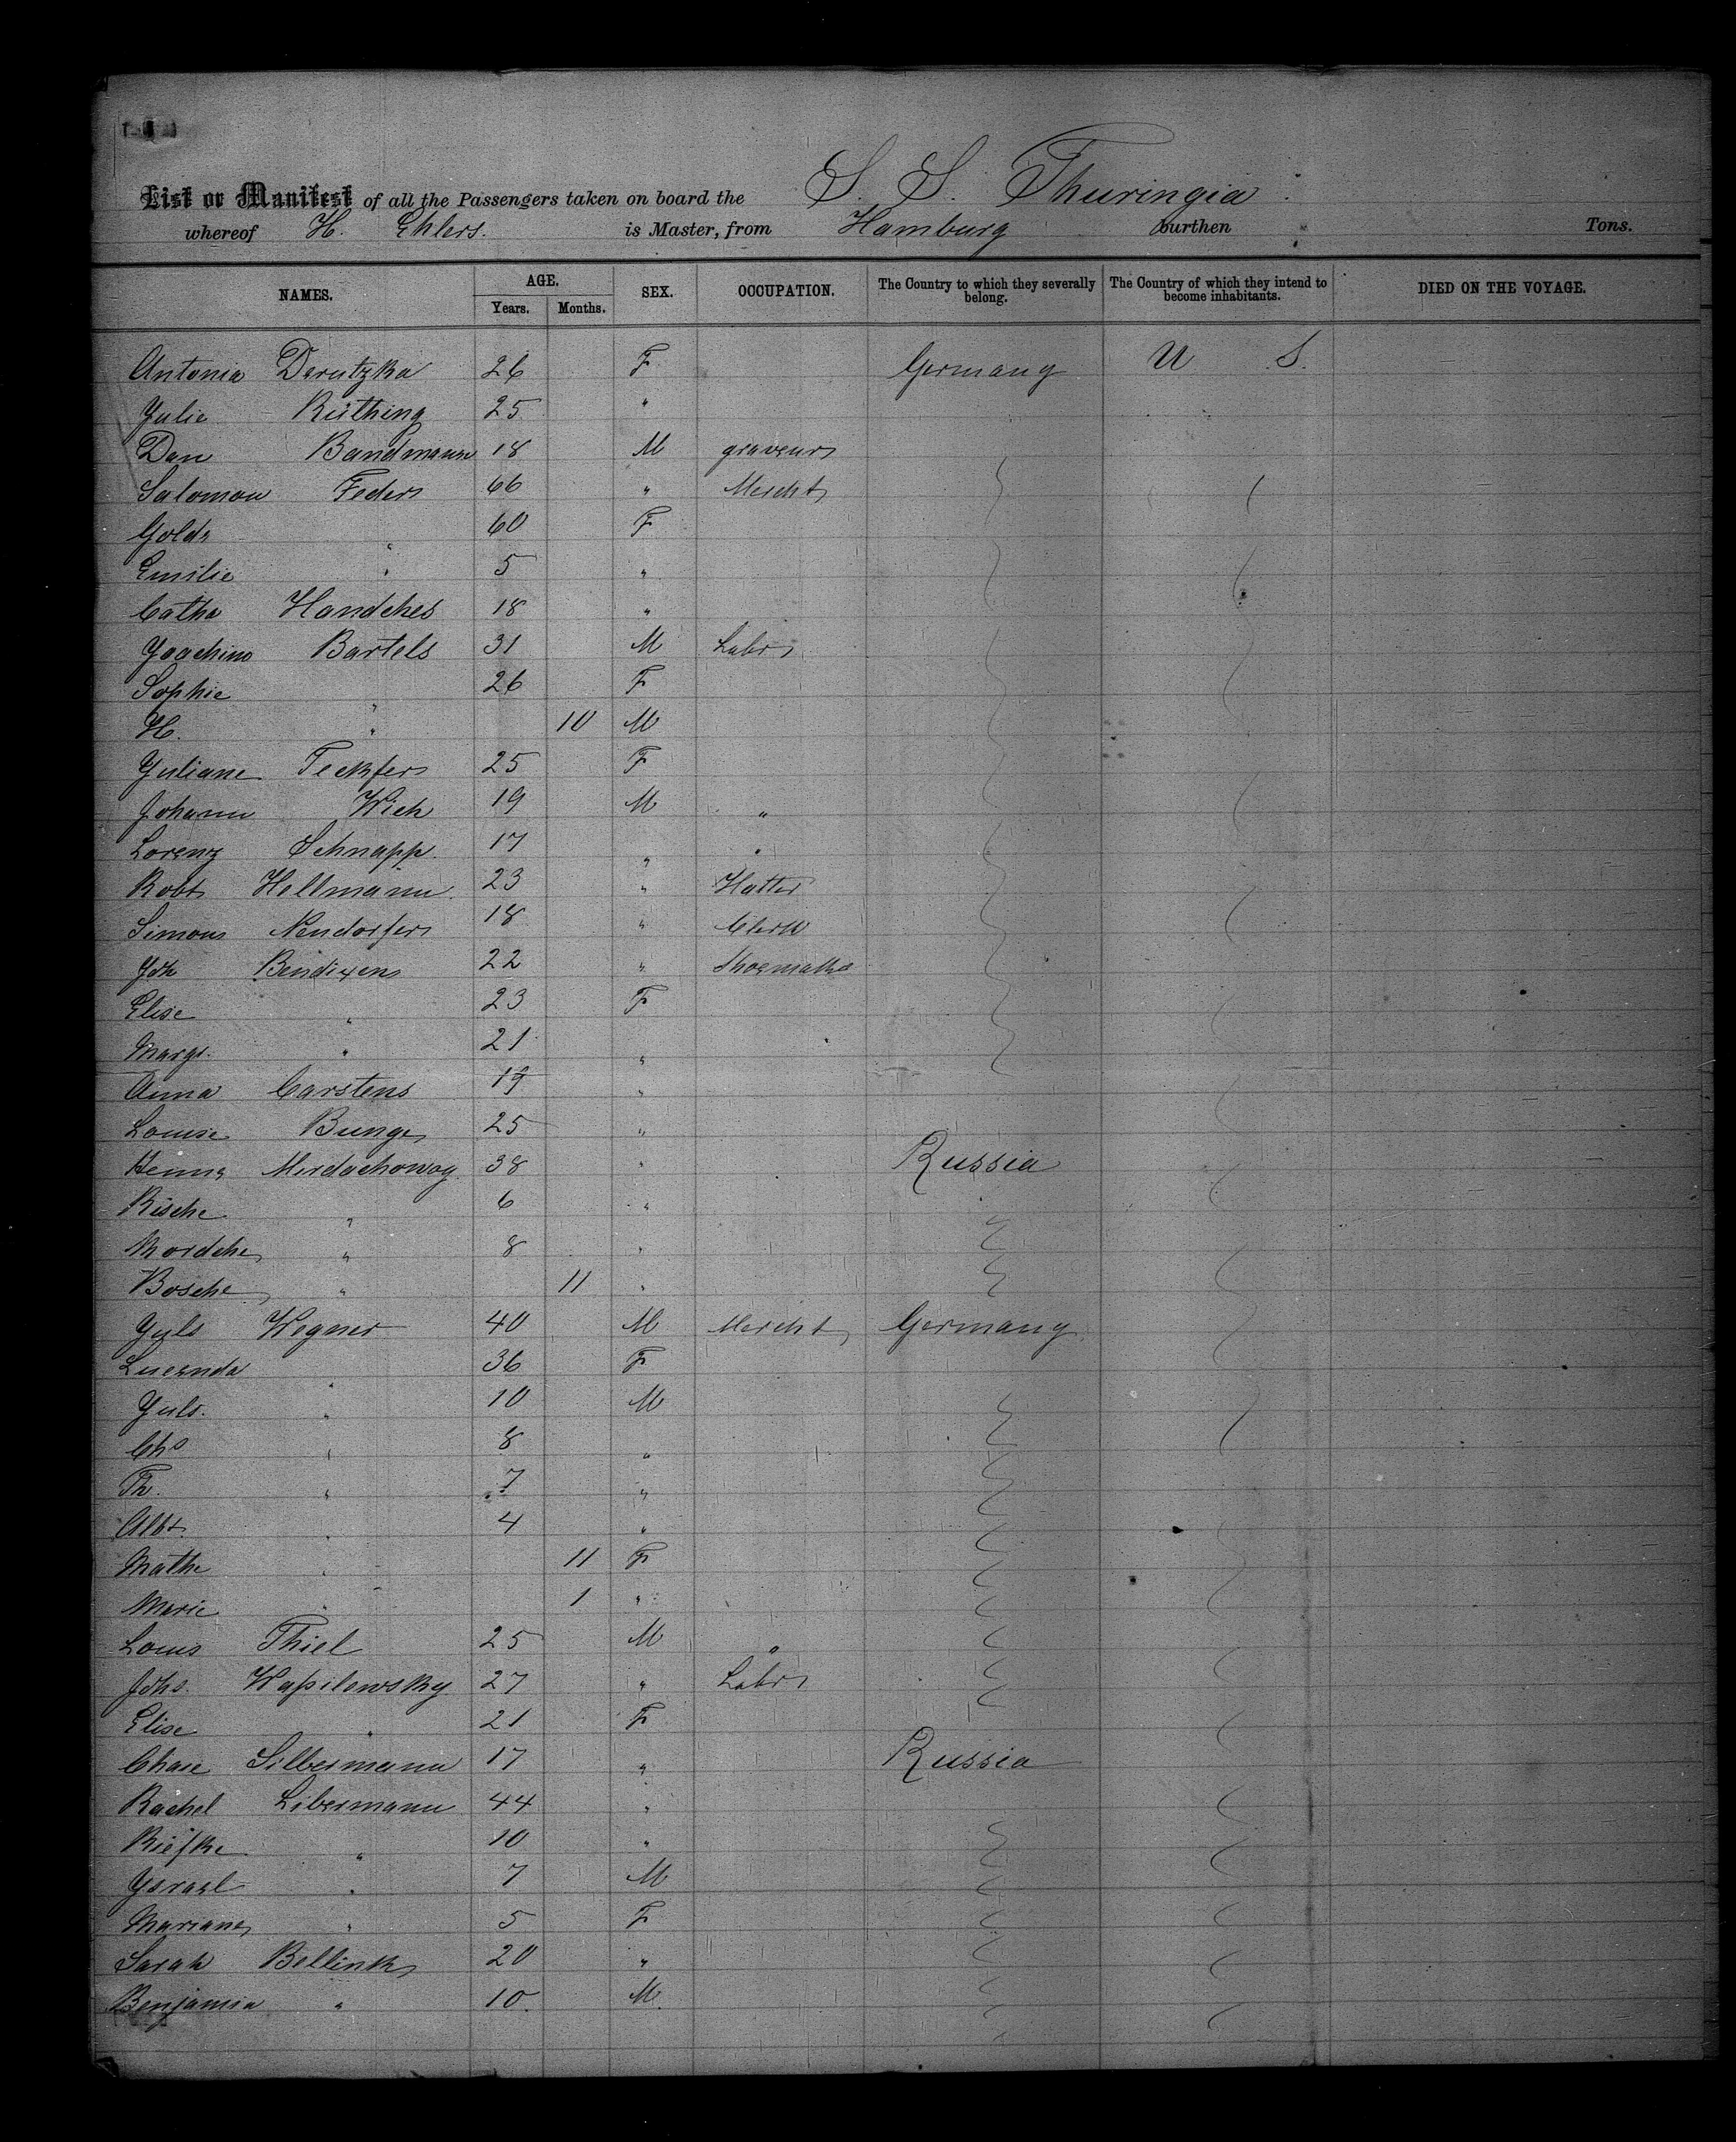 List or Manifest of all the Passengers taken on board the S. S. Thuringia
whereof H. Ehlers. is Master, from Hamburg burthen Tons.
NAMES. AGE. Years. Months. SEX. OCCUPATION. The Country to which they severally belong. The Country of which they intend to become inhabitants. DIED ON THE VOYAGE.
Antonia Derutzka 26 F Germany U S.
Julie Rüthing 25 "
Dan Bandmann 18 M graveur
Salomon Feder 66 " Mercht
Golde " 60 F
Emilie " 5 "
Catha Handches 18 "
Joachim Bartels 31 M Labr
Sophie " 26 F
H. " 10 M
Juliane Teckfer 25 F
Johann Wich 19 M "
Lorenz Schnapp. 17 " "
Robt Hellmann. 23 " Hatter
Simon Neudorfer 18 " Clerk
Joh Bendixen 22 " Shoemaker
Elise " 23 F
Margr. " 21 "
Anna Carstens 19 "
Louise Bunge 25 "
Henne 38 " Russia
Rische " 6 "
Mordche " 8 "
Bosche " 11 "
Juls Wegner 40 M Mercht Germany
" 36 F
Juls. " 10 M
Chs " 8 "
Th. " 7 "
Albt. " 4 "
Mathe " 11 F
Marie " 1 "
Louis Thiel 25 M "
Johs. Wasilewsky 27 " Labr
Elise " 21 F
Chase Silbermann 17 " Russia
Rachel Libermann 44 "
Riefke " 10 "
Israel " 7 M
Mariane " 5 F
Sarah Bellink 20 "
Benjamin " 10. M.